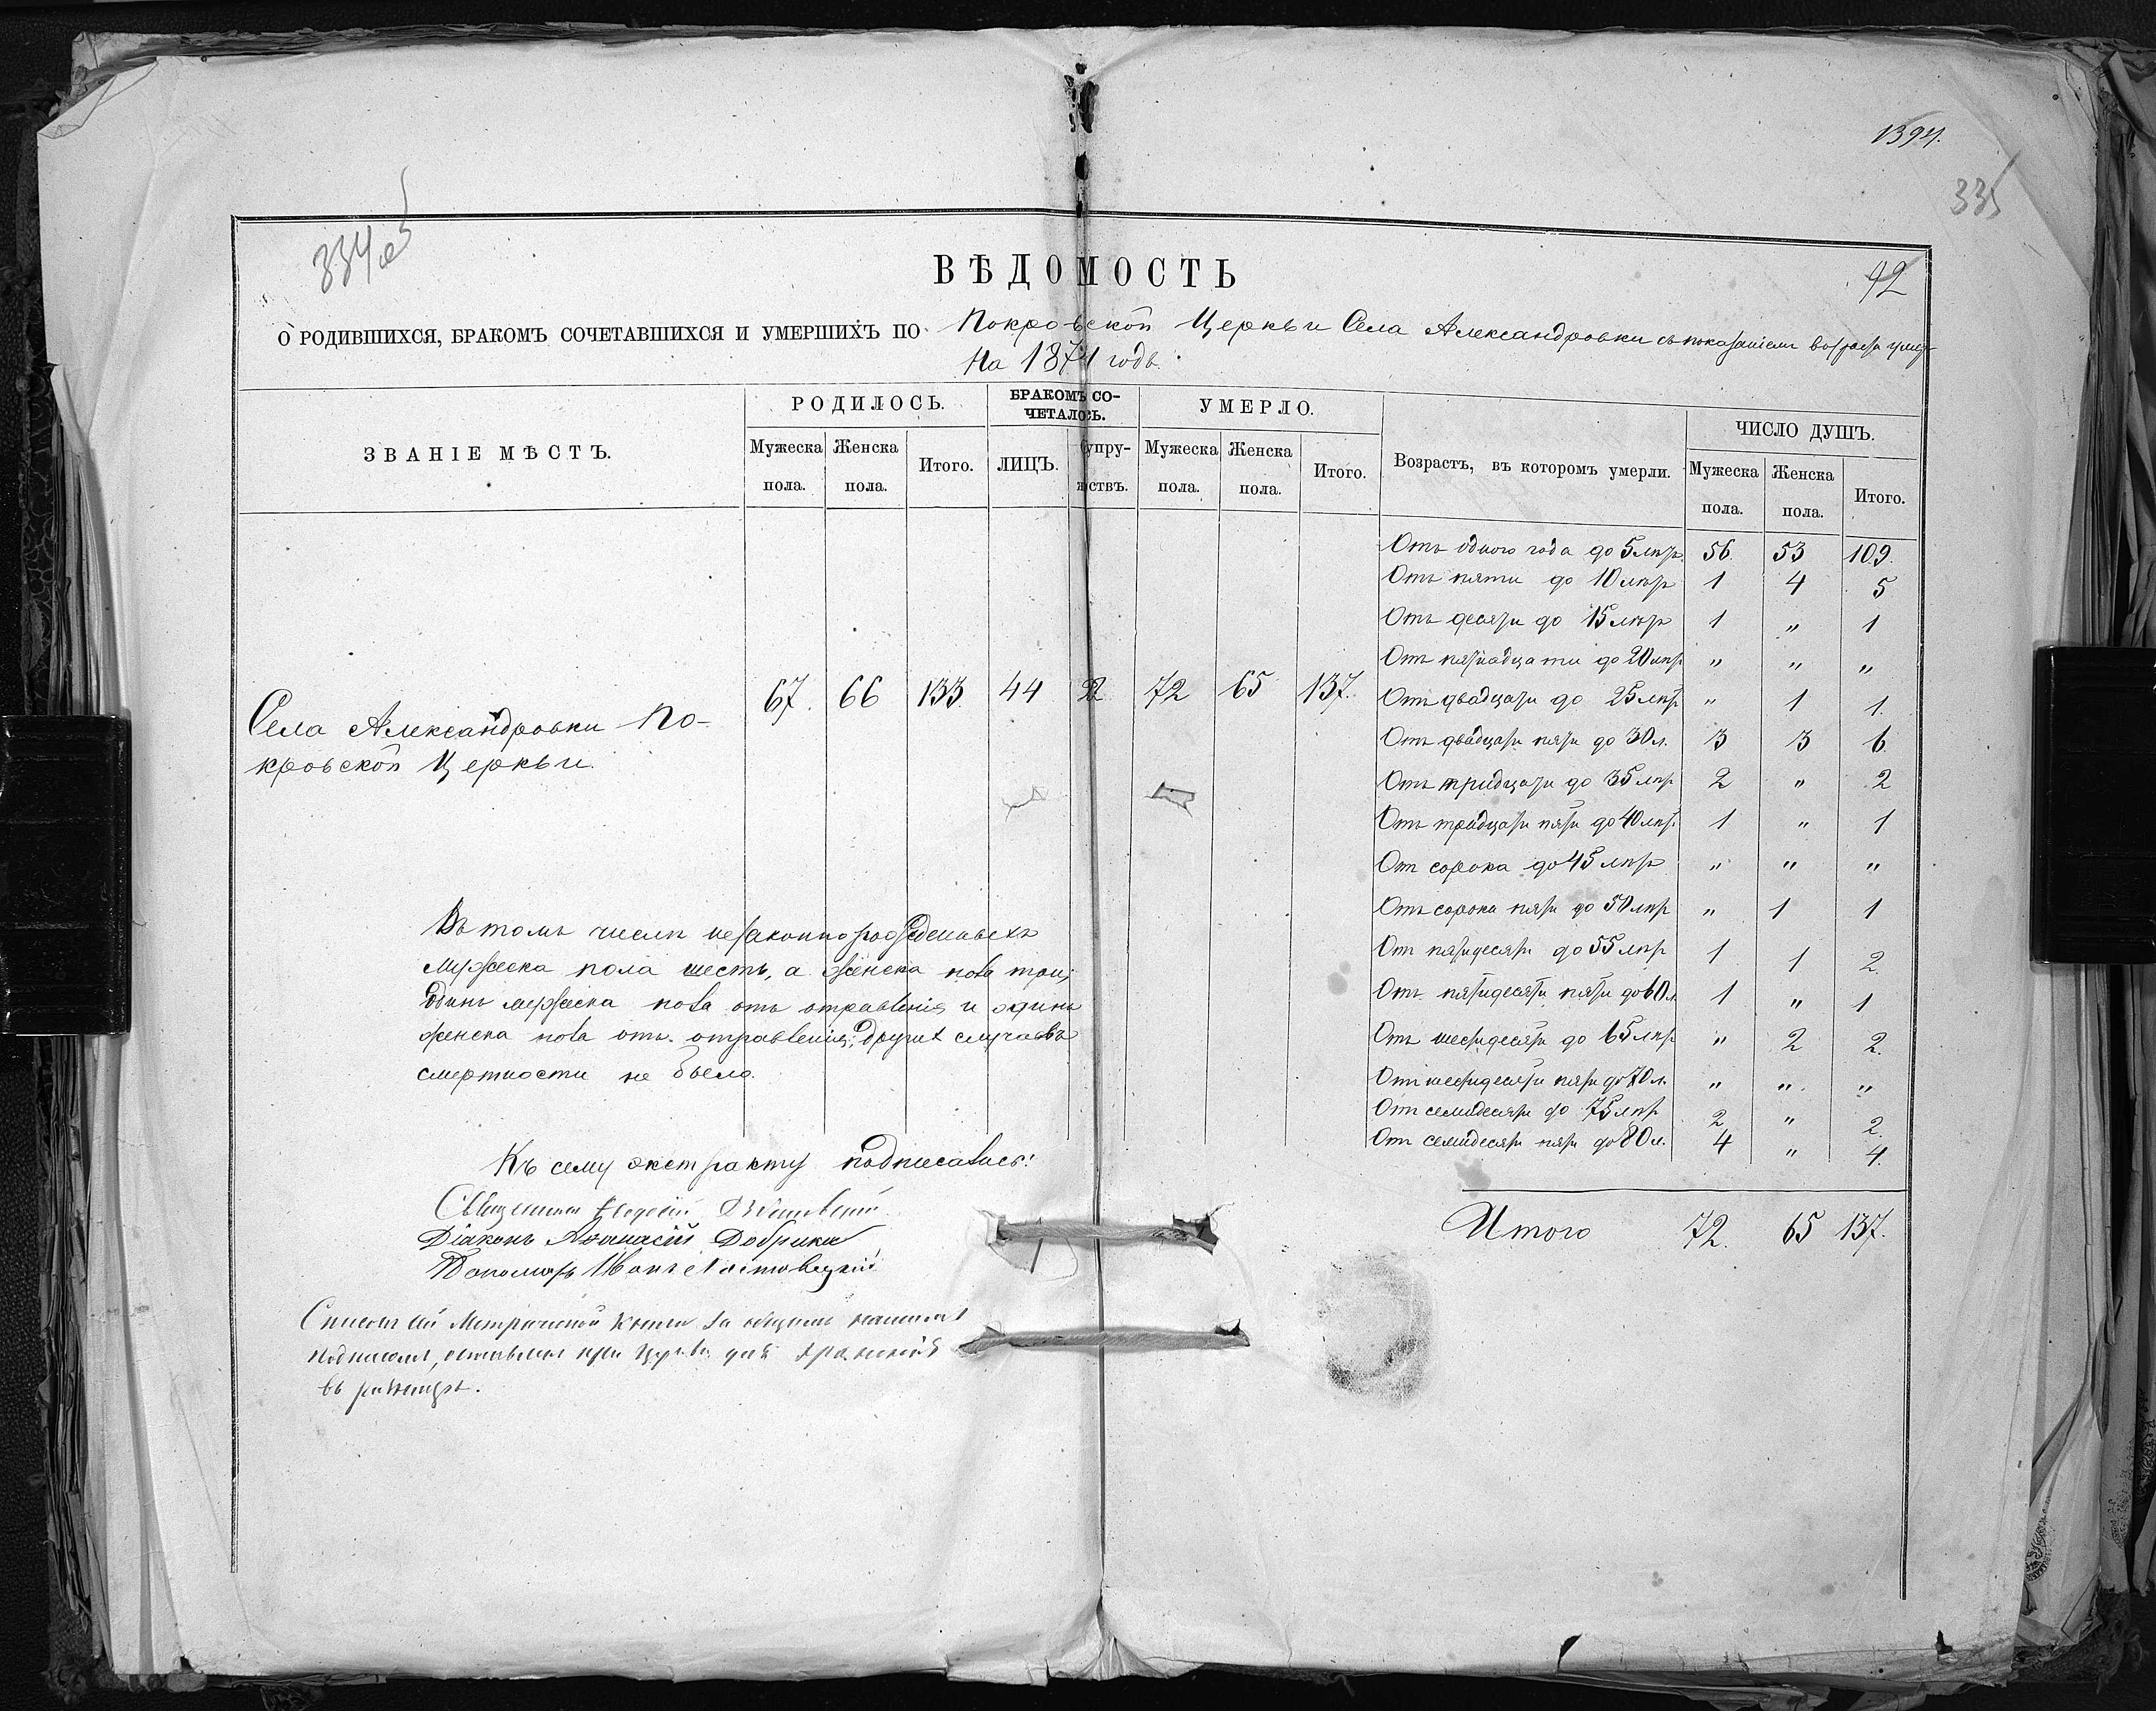 1394.
335
334об
92
ВѢДОМОСТЬ
О РОДИВШИХСЯ, БРАКОМЪ СОЧЕТАВШИХСЯ И УМЕРШИХЪ ПО Покровской Церкви Села Александровки съ показаніемъ возраста умер-
На 1874 годъ.
ЗВАНІЕ МѢСТЪ. РОДИЛОСЬ. БРАКОМЪ СО-ЧЕТАЛОСЬ. УМЕРЛО. Возрастъ, въ которомъ умерли. ЧИСЛО ДУШЪ.
Мужеска пола. Женска пола. Итого. ЛИЦЪ. Супру-жествъ. Мужеска пола. Женска пола. Итого. Мужеска пола. Женска пола. Итого.
Села Александровки По-
кровской Церкви.
67. 66 133 44 22 72 65 137.
Отъ одного года до 5 лѣтъ 56. 53 109.
Отъ пяти до 10 лѣтъ 1 4 5
Отъ десяти до 15 лѣтъ 1 " 1
Отъ пятнадцати до 20 лѣтъ " " "
Отъ двадцати до 25 лѣтъ " 1 1.
Отъ двадцати пяти до 30 л. 3 3 6
Отъ тридцати до 35 лѣтъ 2 " 2
Отъ тридцати пяти до 40 лѣт. 1 " 1
От сорока до 45 лѣтъ " " "
Отъ сорока пяти до 50 лѣтъ " 1 1
От пятидесяти до 55 лѣтъ 1 1 2.
Отъ пятидесяти пяти до 60 л. 1 " 1
Отъ шестидесяти до 65 лѣтъ " 2 2.
От шестидесяти пяти до 70 л. " " "
От семидесяти до 75 лѣтъ 2 " 2.
От семидесяти пяти до 80 л. 4 " 4.
Итого 72. 65 137.
Въ томъ числѣ незаконнорожденныхъ
мужеска пола шесть, а женска пола три;
одинъ мужеска пола отъ отравленія и одинъ
женска пола отъ отравленія; других случаевъ
смертности не было.
Къ сему экстракту подписались:
Священникъ Феодосій
Діаконъ Аѳанасій Добрики
Пономарь Иванъ
Списокъ сей Метрической Книги за общимъ нашимъ
подписомъ, оставленъ при Церкви для храненія
въ ризницѣ.